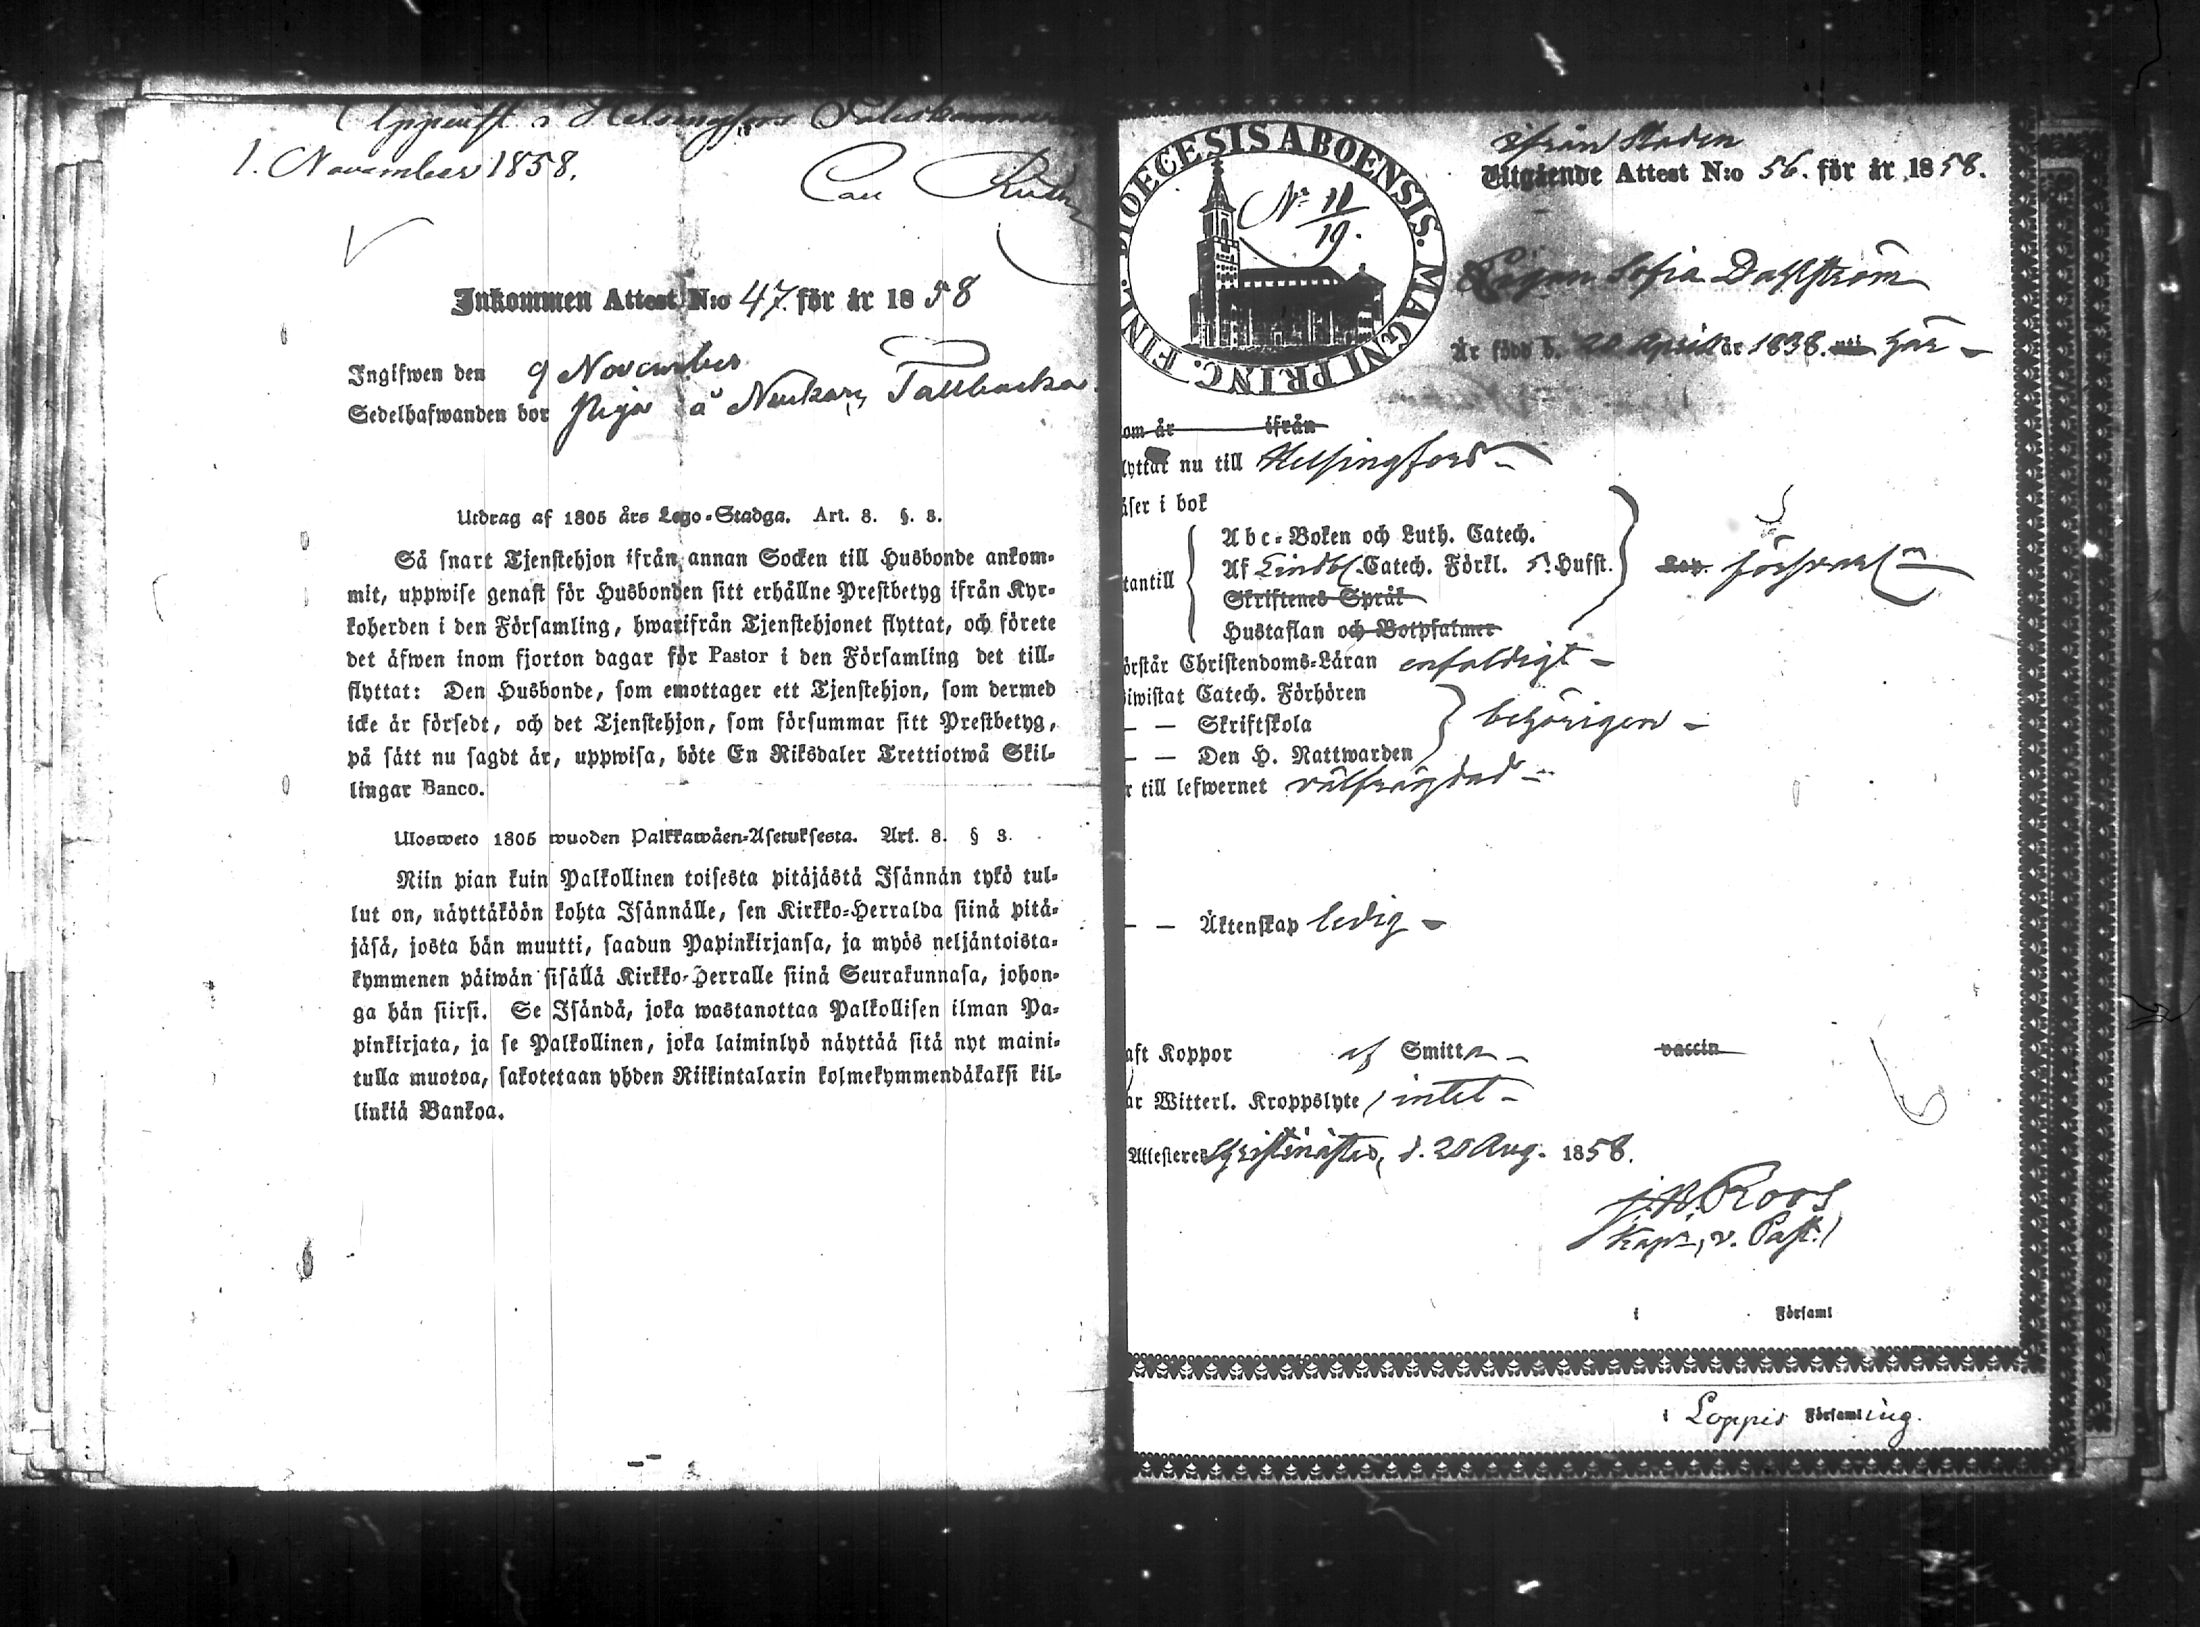 Uppvist i Helsingfors
1. November 1858.
Carl
Inkommen Attest N:o 47. för år 1858
Ingifwen den 9 November
Sedelhafwanden bor Piga å Tallbacka
Utdrag af 1805 års Lego-Stadga. Art. 8. §. 3.
Så snart Tjenstehjon ifrån annan Socken till Husbonde ankom-
mit, uppwise genast för Husbonden sitt erhållne Prestbetyg ifrån Kyr-
koherden i den Församling, hwarifrån Tjenstehjonet flyttat, och förete
det äfwen inom fjorton dagar för Pastor i den Församling det till-
flyttat: Den Husbonde, som emottager ett Tjenstehjon, som dermed
icke är försedt, och det Tjenstehjon, som försummar sitt Prestbetyg,
på sätt nu sagdt är, uppwisa, böte En Riksdaler Trettiotwå Skil-
lingar Banco.
Ulosweto 1805 wuoden Palkkawäen-Asetuksesta. Art. 8. § 3.
Niin pian kuin Palkollinen toisesta pitäjästä Isännän tykö tul-
lut on, näyttäköön kohta Isännälle, sen Kirkko-Herralda siinä pitä-
jäsä, josta hän muutti, saadun Papinkirjansa, ja myös neljäntoista-
kymmenen päiwän sisällä Kirkko-Herralle siinä Seurakunnasa, johon-
ga hän siirsi. Se Isändä, joka wastanottaa Palkollisen ilman Pa-
pinkirjata, ja se Palkollinen, joka laiminlyö näyttää sitä nyt maini-
tulla muotoa, sakotetaan yhden Riikintalarin kolmekymmendäkaksi kil-
linkiä Bankoa.
DIOECESIS ABOENSIS. MAGNI PRINC. FINL.
N:o 11/19.
ifrån Staden
Utgående Attest N:o 56. för år 1858.
Pigan Sofia Dahlström
Är född d. 20 April år 1838. uti här
om år ifrån
lyttar nu till Helsingfors
äser i bok
tantill
Abc-Boken och Luth. Catech.
Af Lindbl. Catech. Förkl. 5. Hufst.
Skriftenes Språk
Hustaflan och Botpsalmer
försvarl.
örstår Christendoms-Läran enfaldigt
iwistat Catech. Förhören
— — Skriftskola
— — Den H. Nattwarden
behörigen
r till lefwernet välfrägdad
— — Äktenskap ledig
aft Koppor af Smitta vaccin
ar Witterl. Kroppslyte intet
Attesteres Christinæstad, d. 20 Aug. 1858.
Roos
Kapn, v. Past.
i Församl
i Loppis Församling.